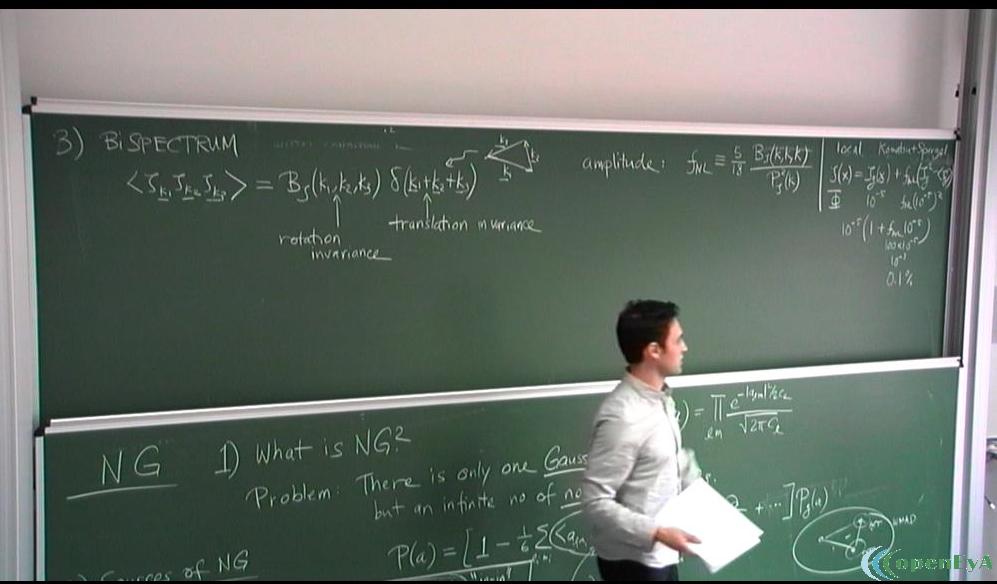 3) BISPECTRUM
<ζk₁ ζk₂ ζk₃> = Bζ(k₁,k₂,k₃) δ(k₁+k₂+k₃)
rotation
invariance
translation invariance
amplitude: fNL ≡ 5/18 Bζ(k,k,k)/Pζ²(k)
local Komatsu+Spergel
10⁻⁵ fNL(10⁻⁵)²
10⁻⁵(1 + fNL10⁻⁵)
100×10⁻⁵
0.1%
NG
1) What is NG?
Problem: There is only one Gauss
but an infinite no of no
P(a) = [1 - 1/6 Σ
+ ...] Pg(a)
) = ∏lm e^(-|alm|²/2Cl) / √2πCl
Sources of NG
openEyA